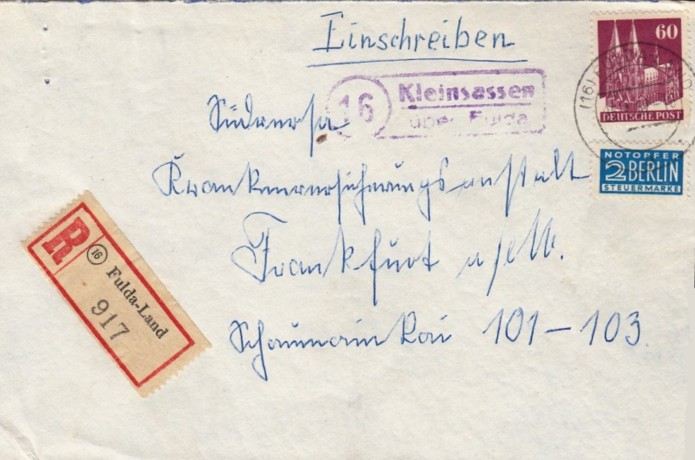 Einschreiben
60
DEUTSCHE POST
16
Kleinsassen
über Fulda
(16)
NOTOPFER
2 BERLIN
STEUERMARKE
Südversa
Krankenversicherungsanstalt
Frankfurt a/M.
Schaumainkai 101-103
R
16
Fulda-Land
917